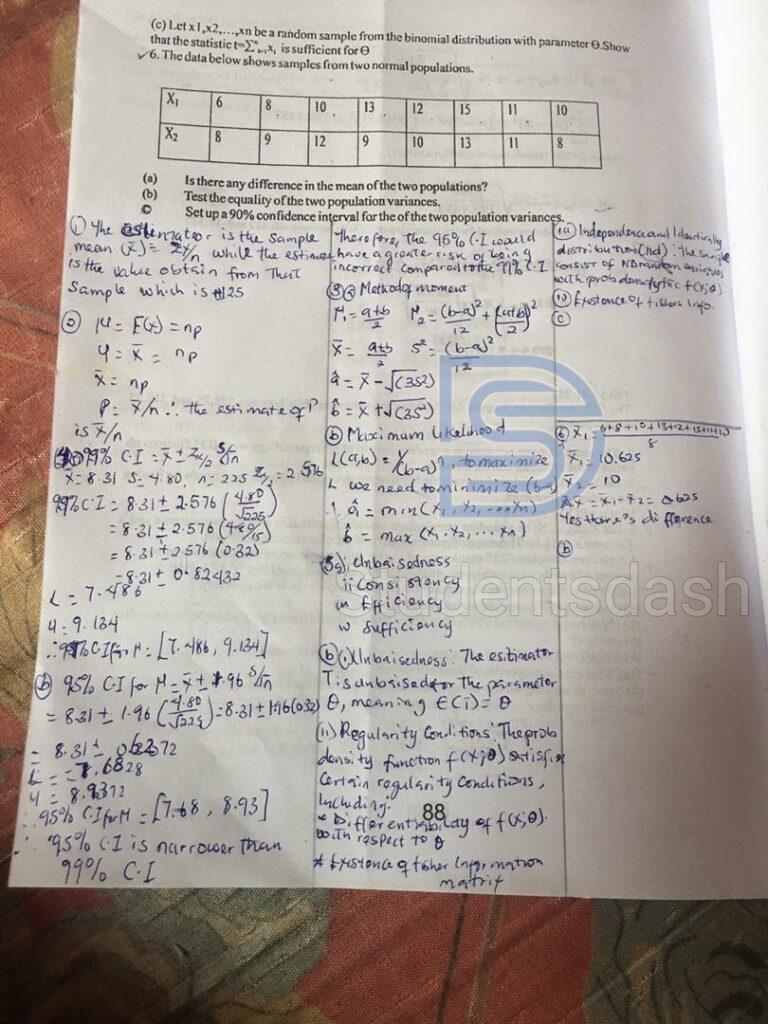 (c) Let x1,x2,…,xn be a random sample from the binomial distribution with parameter Θ.Show
that the statistic t=∑ⁿᵢ₌₁xᵢ is sufficient for Θ
✓6. The data below shows samples from two normal populations.
X₁ 6 8 10 13 12 15 11 10
X₂ 8 9 12 9 10 13 11 8
(a) Is there any difference in the mean of the two populations?
(b) Test the equality of the two population variances.
© Set up a 90% confidence interval for the of the two population variances.
① The estimator is the sample
mean (x̄) = Σx/n while the estimate
is the value obtain from that
Sample which is 25
② μ = E(x) = np
μ = x̄ = np
x̄ = np
P = x̄/n ∴ the estimate of P
is x̄/n
99% C.I = x̄ ± Zα/2 S/√n
x̄ = 8.31 S = 4.80, n = 225 Zα/2 = 2.576
99% C.I = 8.31 ± 2.576 (4.80/√225)
= 8.31 ± 2.576 (4.80/15)
= 8.31 ± 2.576 (0.32)
= 8.31 ± 0.82432
L = 7.486
U = 9.134
∴ 99% C.I for μ = [7.486, 9.134]
ⓑ 95% C.I for μ = x̄ ± 1.96 S/√n
= 8.31 ± 1.96 (4.80/√225) = 8.31 ± 1.96(0.32)
= 8.31 ± 0.6272
L = 7.6828
U = 8.9372
∴ 95% C.I for μ = [7.68, 8.93]
∴ 95% C.I is narrower than
99% C.I
Therefore, the 95% C.I would
have a greater risk of being
incorrect compared to the 99% C.I
③ ⓐ Method of moment
μ₁ = a+b/2 μ₂ = (b-a)²/12 + (a+b/2)²
x̄ = a+b/2 S² = (b-a)²/12
â = x̄ - √(3S²)
b̂ = x̄ + √(3S²)
ⓑ Maximum likelihood
L(a,b) = 1/(b-a)ⁿ, to maximize
L we need to minimize (b-a)
∴ â = min(x₁, x₂, ...xn)
b̂ = max (x₁, x₂, ... xn)
5a i. Unbaisedness
ii Consistency
iii Efficiency
iv Sufficiency
ⓑ (i) Unbaisedness: The esitimator
T is unbaised for the parameter
θ, meaning E(T) = θ
(ii) Regularity Conditions: The prob
density function f(x;θ) satisfies
Certain regularity conditions,
Including:
* Differentiability of f(x;θ).
with respect to θ
* Existence of fisher Information
matrix
88
Independence and Identically
distribution (iid): The sample
consist of N random variables
with prob density fnc f(x;θ)
Existance of fishers Info.
ⓒ
⑥ x̄₁ = 6+8+10+13+12+15+11+10/8
x̄₁ = 10.625
x̄₂ = 10
x̄₁-x̄₂ = 0.625
Yes there's difference
ⓑ
studentsdash